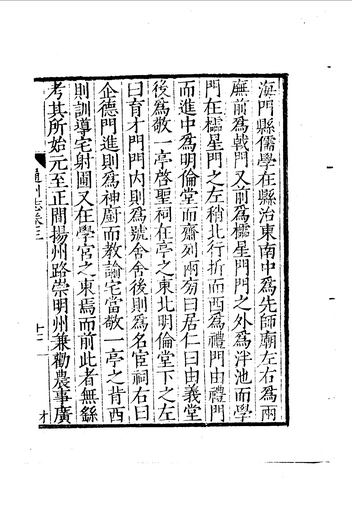 海門縣儒學在縣治東南中爲先師廟左右爲兩
廡前爲戟門又前爲櫺星門門之外爲泮池而學
門在櫺星門之左稍北行折而西爲禮門由禮門
而進中爲明倫堂而齋列兩匆曰居仁曰由義堂
後爲敬一亭啓聖祠在亭之東北明倫堂下之左
曰育才門門內則爲號舍舍後則爲名宦祠右曰
企德門進則爲神厨而教諭宅當敬一亭之背西
則訓導宅射圃又在學宮之東焉而前此者無繇
考其所始元至正間揚州路崇明州兼勸農事廣
通州志卷三
十二